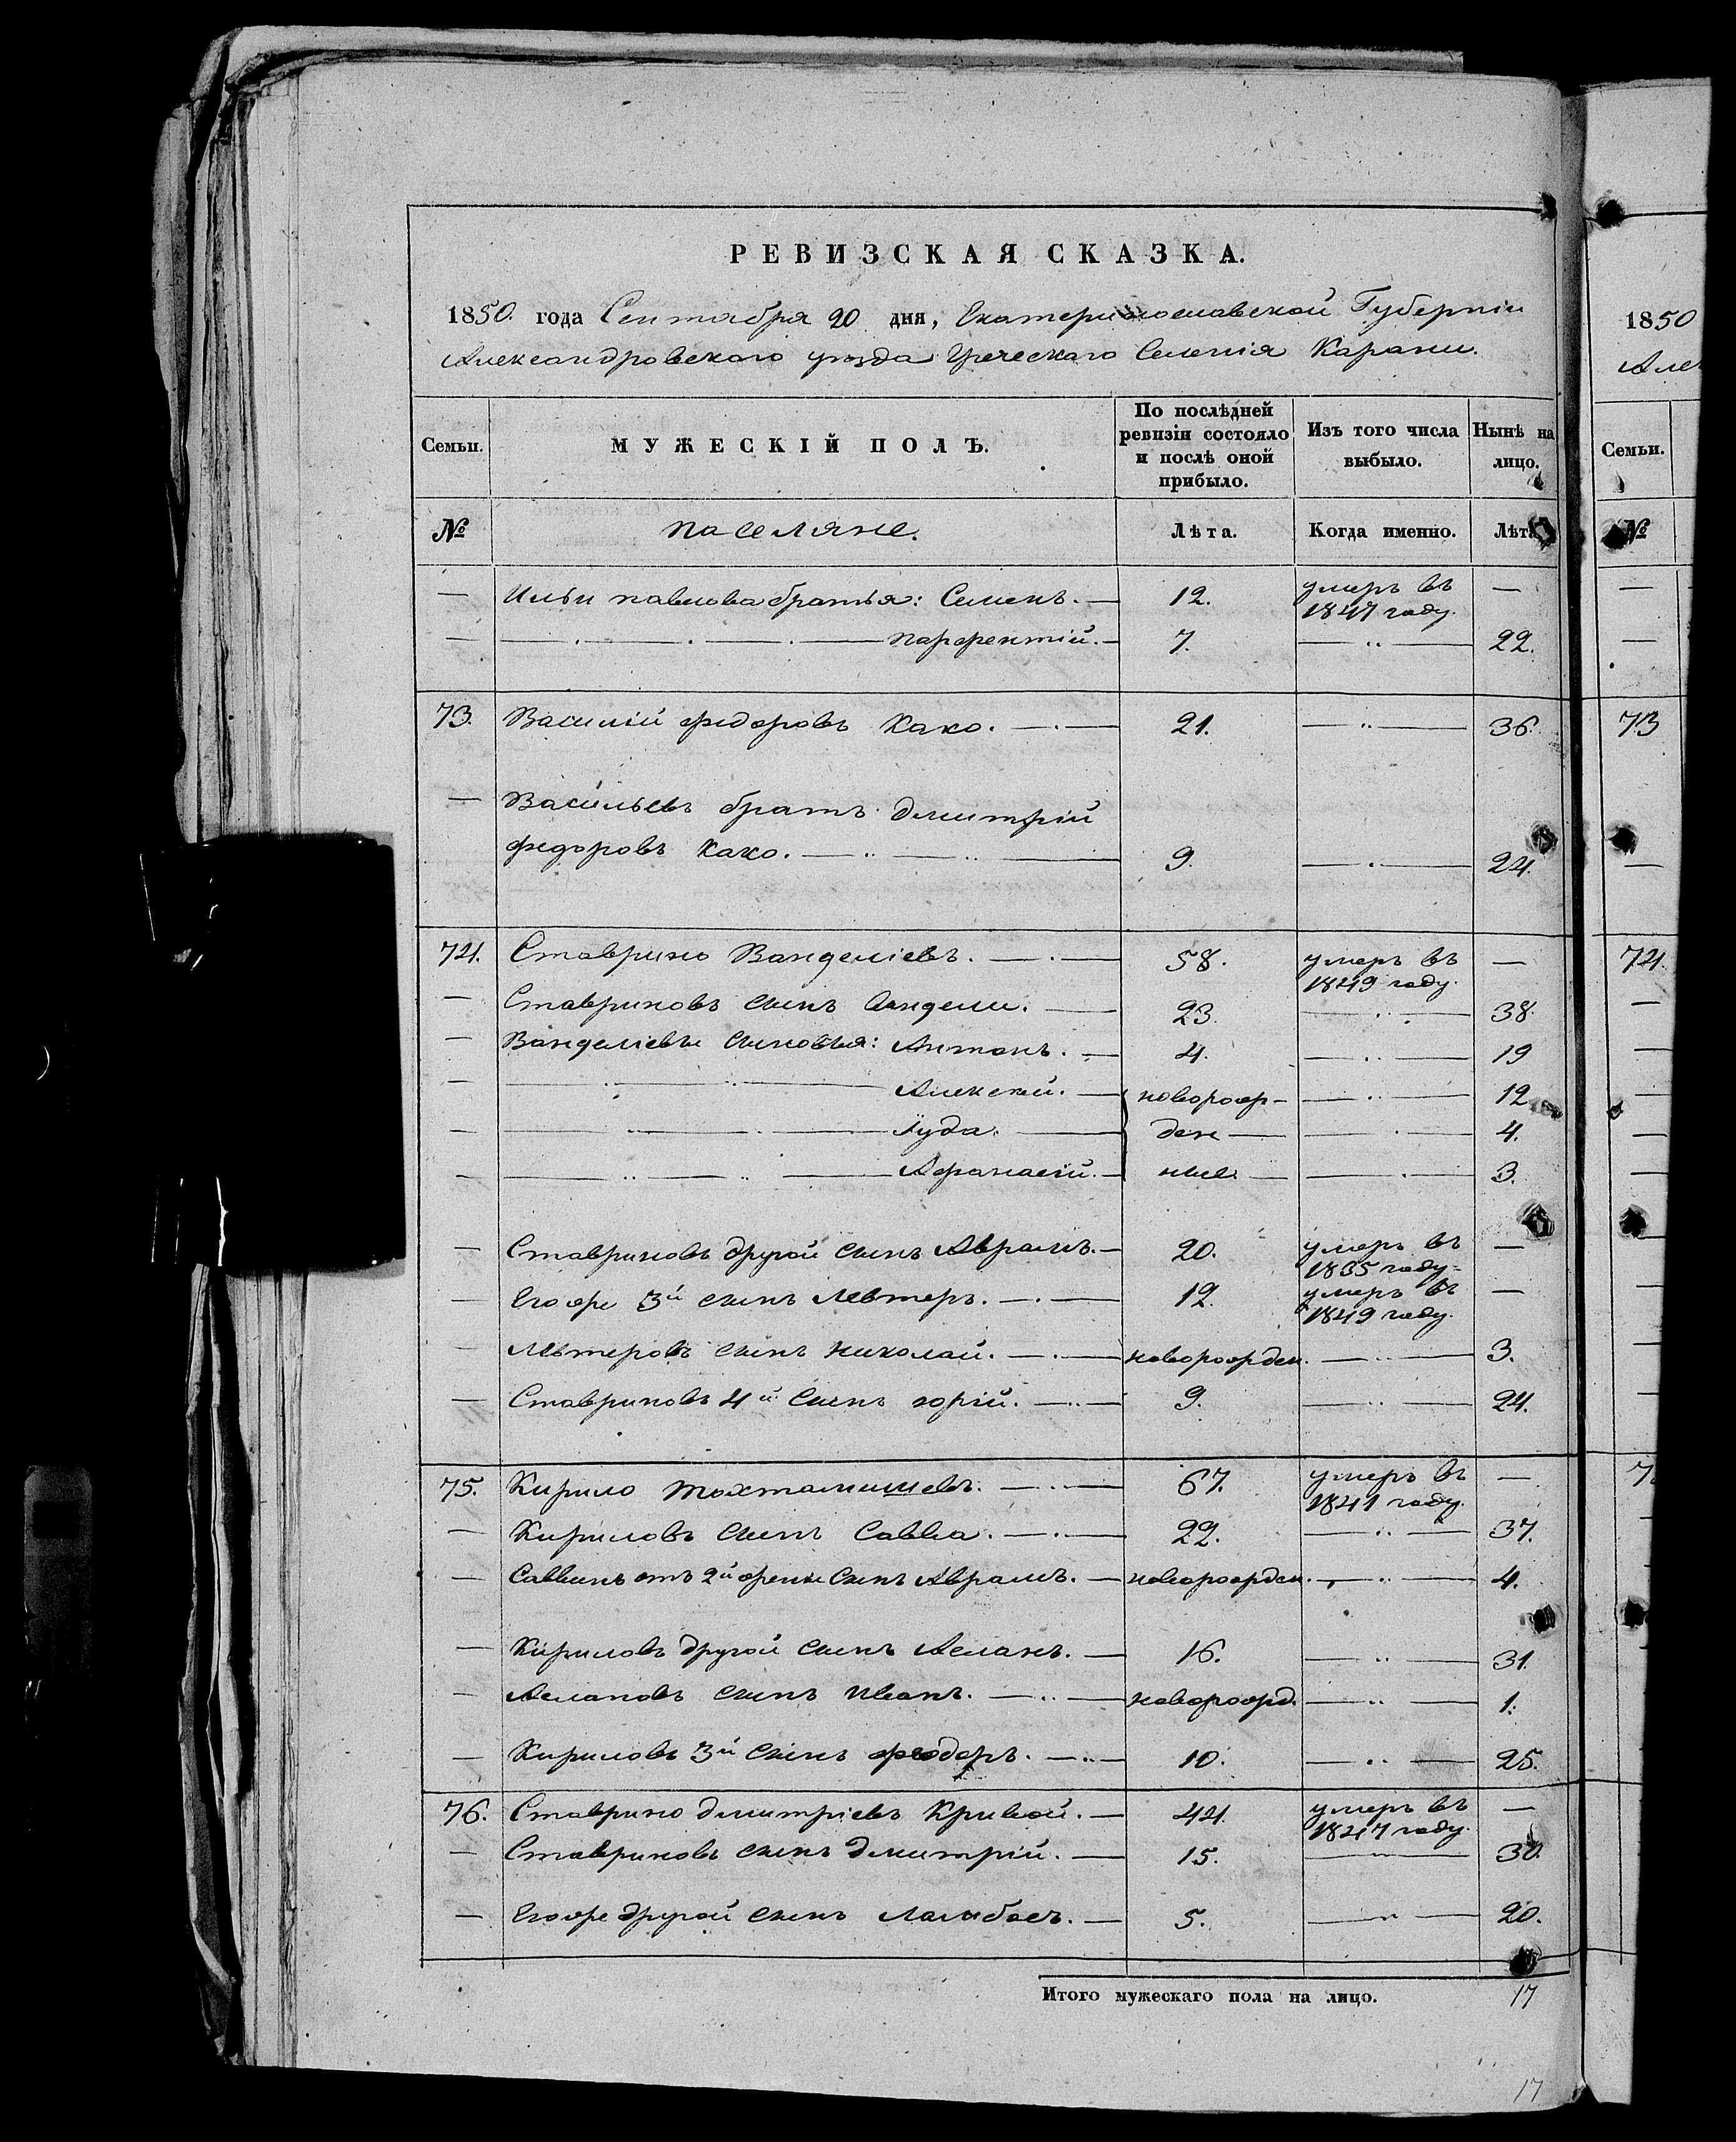 РЕВИЗСКАЯ СКАЗКА.
1850. года Сентября 20 дня, Екатеринославской Губерніи
Александровскаго уѣзда Греческаго Селенія Карани.
Семьи.
МУЖЕСКІЙ ПОЛЪ.
По послѣдней ревизіи состояло и послѣ оной прибыло.
Изъ того числа выбыло.
Нынѣ на лицо.
№
поселяне.
Лѣта.
Когда именно.
Лѣта
— Ильи павлова братья: Семенъ. — 12. умеръ въ 1847 году. —
— Парфентій. — 7. — 22.
73. Василій федоровъ Како. — 21. — 36.
— Васильевъ братъ Дмитрій
федоровъ Како. — 9. — 24.
74. Ставрино Вангеліевъ. — 58. умеръ въ 1849 году. —
— Ставриновъ сынъ Вангели. — 23. — 38.
— Вангеліевы сыновья: Антонъ. — 4. — 19
— Алексей. — новорож- — 12
— Іуда. — ден — 4.
— Афанасій. — ные. — 3.
— Ставриновъ другой сынъ Аврамъ. — 20. умеръ въ 1835 году. —
— Егоже 3й сынъ Левтеръ. — 12. умеръ въ 1849 году. —
— Левтеровъ сынъ Николай. — новорожден. — 3.
— Ставриновъ 4й сынъ юрій. — 9. — 24.
75. Кирило Тохтамишевъ. — 67. умеръ въ 1841 году. —
— Кириловъ сынъ Савва. — 22. — 37.
— Саввинъ отъ 2й жены сынъ Аврамъ. — новорожден. — 4.
— Кириловъ другой сынъ Асланъ. — 16. — 31.
— Аслановъ сынъ Иванъ. — новорожд. — 1.
— Кириловъ 3й сынъ феодоръ. — 10. — 25.
76. Ставрино Дмитріевъ Кривой. — 44. умеръ въ 1847 году. —
— Ставриновъ сынъ Дмитрій. — 15. — 30.
— Егоже другой сынъ Ламбосъ. — 5. — 20.
Итого мужескаго пола на лицо. 17
17
1850
Але
Семьи.
№
73
74.
7